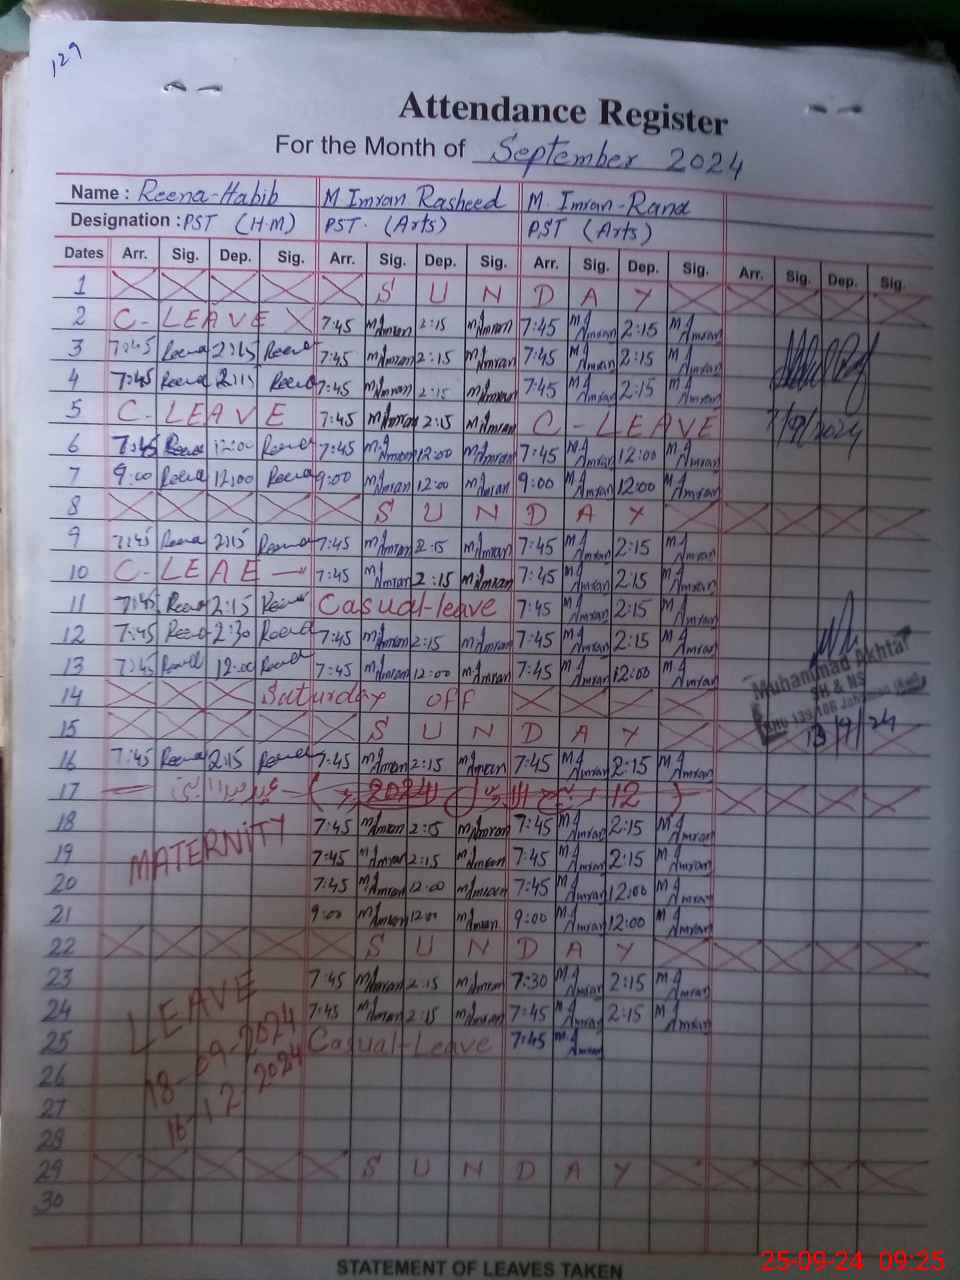 129
Attendance Register
For the Month of September 2024
Name : Reena-Habib M Imran Rasheed M. Imran-Rana
Designation : PST (H.M) PST. (Arts) PST (Arts)
Dates Arr. Sig. Dep. Sig. Arr. Sig. Dep. Sig. Arr. Sig. Dep. Sig. Arr. Sig. Dep. Sig.
1 S U N D A Y
2 C- LEAVE 7:45 M Imran 2:15 M Imran 7:45 M Imran 2:15 M Imran
3 7:45 Reena 2:15 Reena 7:45 M Imran 2:15 M Imran 7:45 M Imran 2:15 M Imran
4 7:45 Reena 2:15 Reena 7:45 M Imran 2:15 M Imran 7:45 M Imran 2:15 M Imran
5 C- LEAVE 7:45 M Imran 2:15 M Imran C - LEAVE 7/9/2024
6 7:45 Reena 12:00 Reena 7:45 M Imran 12:00 M Imran 7:45 M Imran 12:00 M Imran
7 9:00 Reena 12:00 Reena 9:00 M Imran 12:00 M Imran 9:00 M Imran 12:00 M Imran
8 S U N D A Y
9 7:45 Reena 2:15 Reena 7:45 M Imran 2:15 M Imran 7:45 M Imran 2:15 M Imran
10 C- LEAE 7:45 M Imran 2:15 M Imran 7:45 M Imran 2:15 M Imran
11 7:45 Reena 2:15 Reena Casual-leave 7:45 M Imran 2:15 M Imran
12 7:45 Reena 2:30 Reena 7:45 M Imran 2:15 M Imran 7:45 M Imran 2:15 M Imran
13 7:45 Reena 12:00 Reena 7:45 M Imran 12:00 M Imran 7:45 M Imran 12:00 M Imran
Muhammad Akhtar
SH & NS
14 Saturday off
15 S U N D A Y
13/9/24
16 7:45 Reena 2:15 Reena 7:45 M Imran 2:15 M Imran 7:45 M Imran 2:15 M Imran
17 عید میلاد النبی 2024 12
18 7:45 M Imran 2:15 M Imran 7:45 M Imran 2:15 M Imran
MATERNITY
19 7:45 M Imran 2:15 M Imran 7:45 M Imran 2:15 M Imran
20 7:45 M Imran 12:00 M Imran 7:45 M Imran 12:00 M Imran
21 9:00 M Imran 12:00 M Imran 9:00 M Imran 12:00 M Imran
22 S U N D A Y
23 7:45 M Imran 2:15 M Imran 7:30 M Imran 2:15 M Imran
LEAVE
24 7:45 M Imran 2:15 M Imran 7:45 M Imran 2:15 M Imran
25 Casual-Leave 7:45 M Imran
18-09-2024
26
16-12-2024
27
28
29 S U N D A Y
30
STATEMENT OF LEAVES TAKEN
25-09-24 09:25